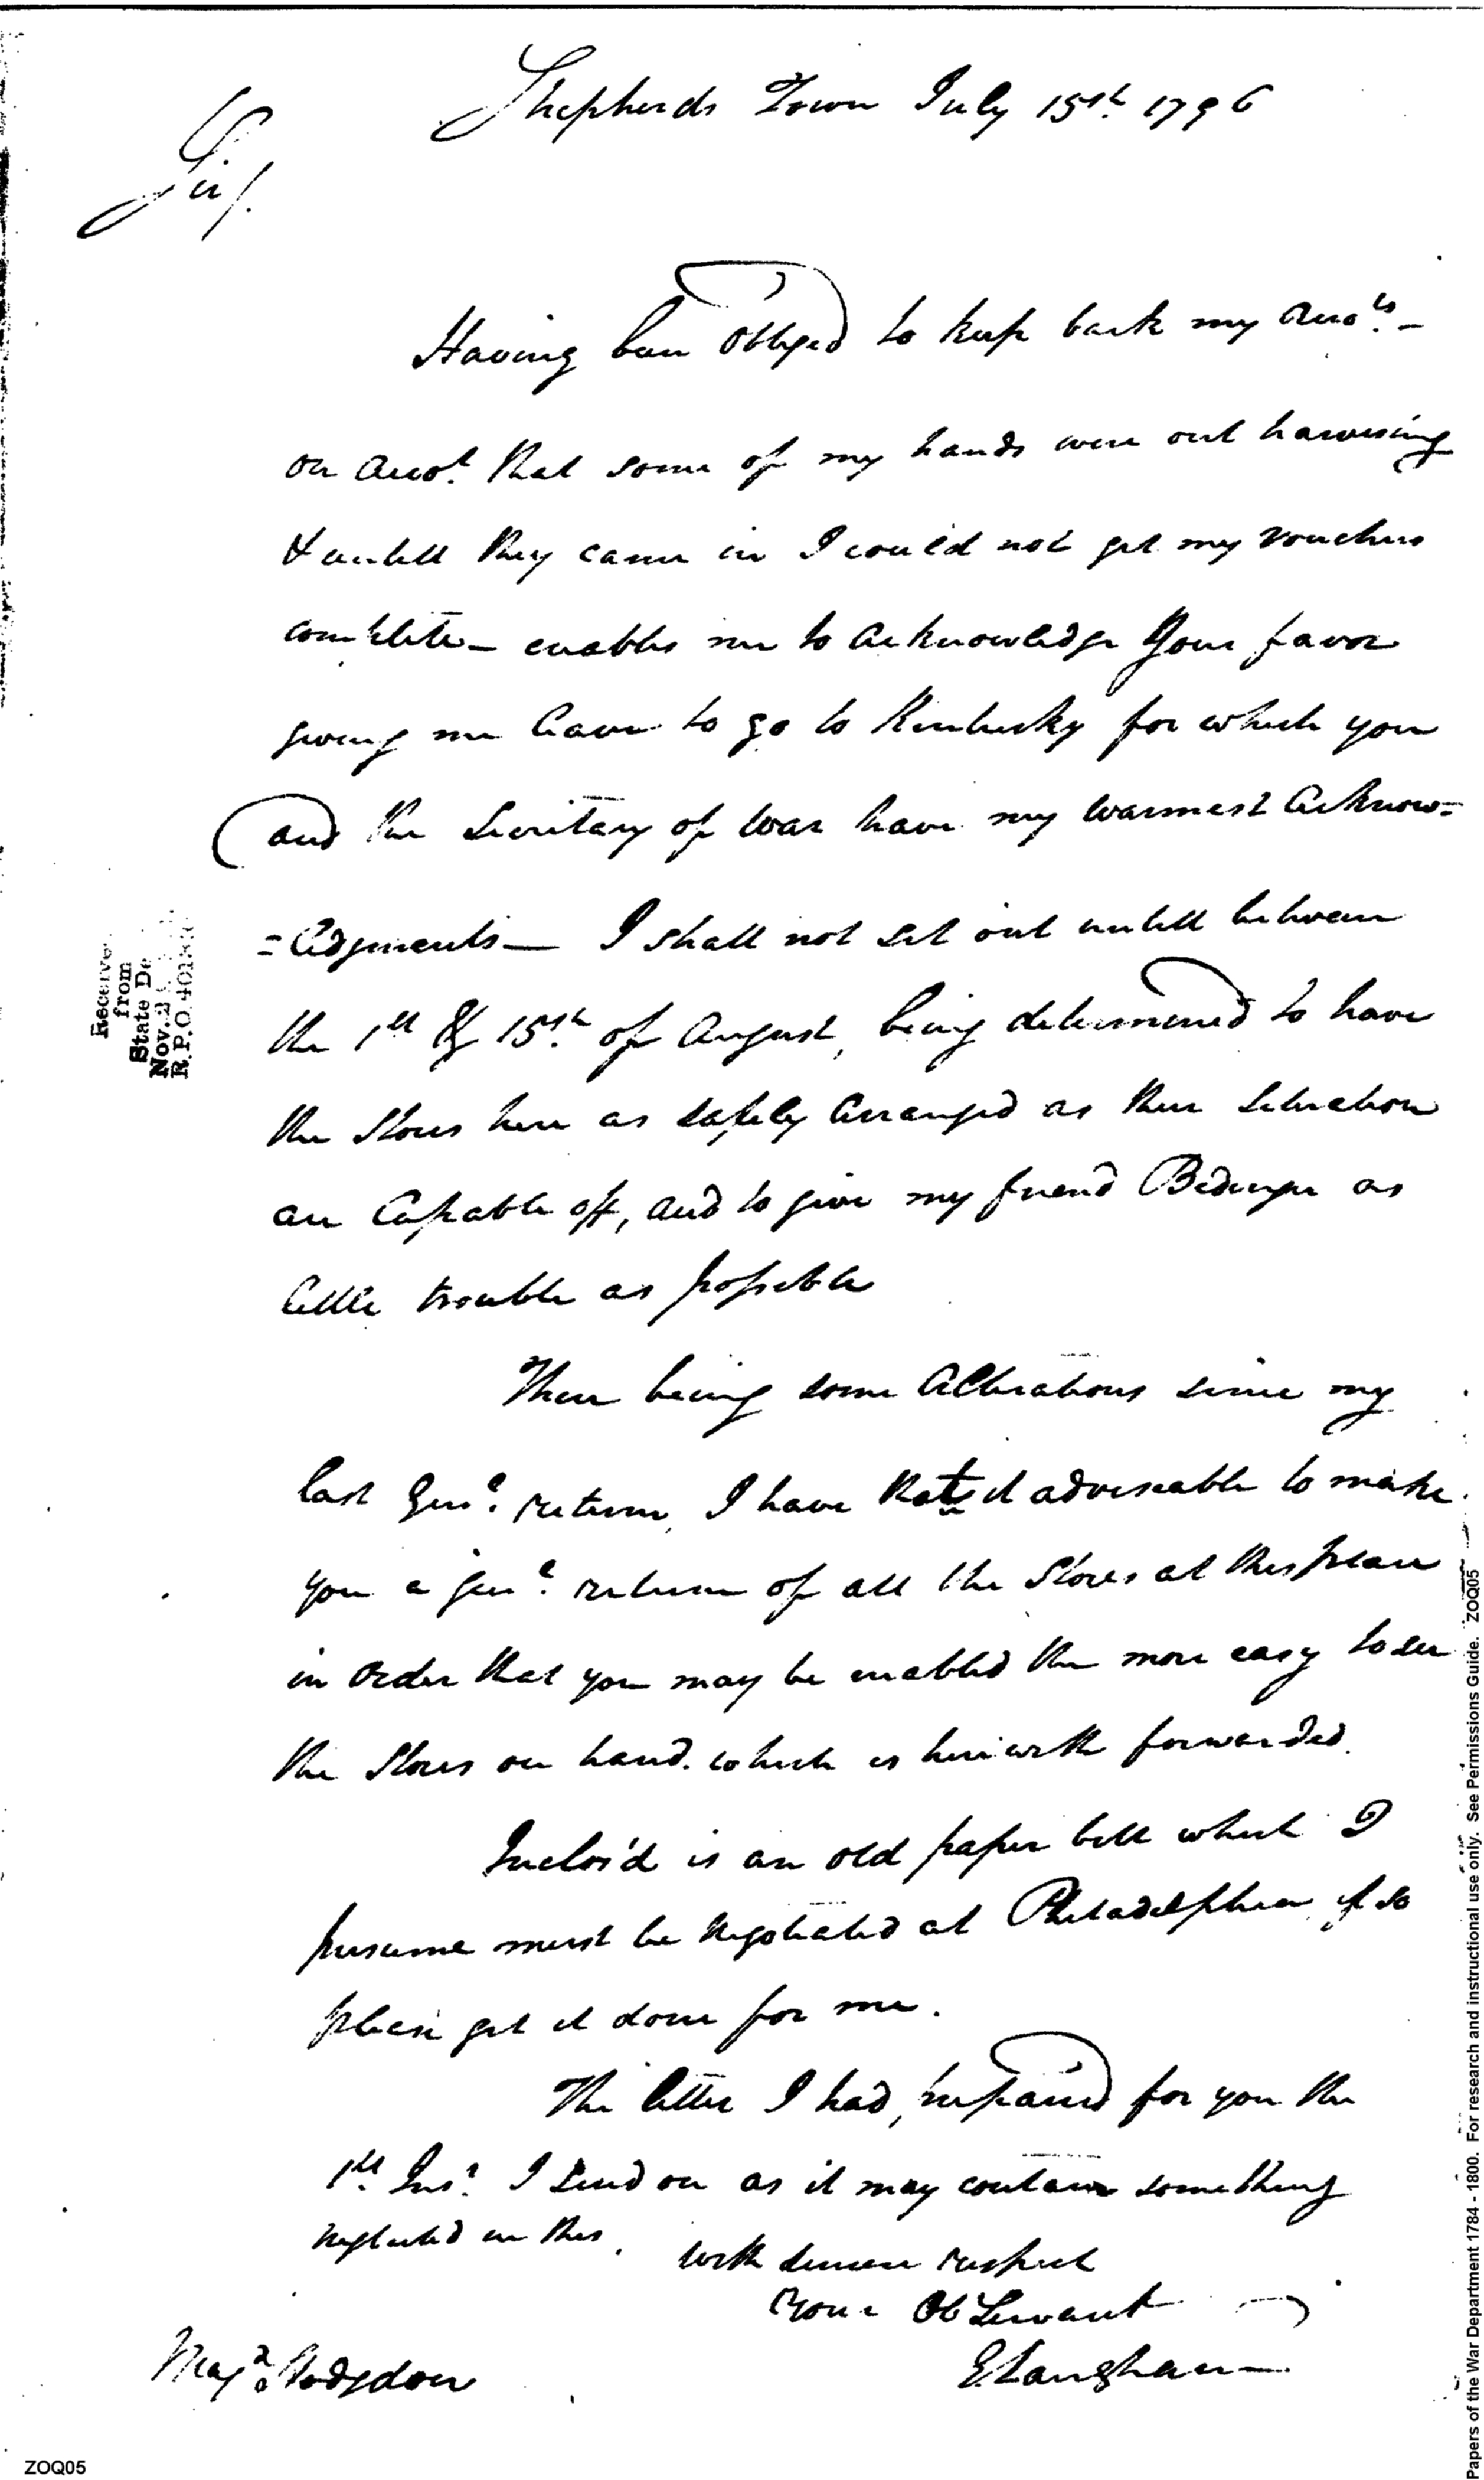 Shepherds Town July 15th. 1796
Sir/.
Having been Obliged to keep back my Accots. –
on Accot. that some of my hands were out harvesting
& untill they came in I could not get my vouchers
complete – enables me to acknowledge Your favor
giving me leave to go to Kentucky for which you
and the Secretary of War have my warmest Acknow=
=ledgments — I shall not set out untill between
the 1st & 15th. of August, being determined to have
the Stores here as safely Arranged as their Situation
are Capable off, and to give my friend Bedinger as
little trouble as possible
There being some Alterations since my
last Genl. return, I have it adviseable to make
you a genl. return of all the Stores at this place
in Order that you may be enabled the more easy to see
the Stores on hand. which is herewith forwarded.
Inclos'd is an old paper bill which I
presume must be Negotiated at Philadelphia, if so
please get it done for me.
The letter I had, prepaired for you the
1st. Inst. I send on as it may contain something
Neglected in this. With sincere respect
Your Ob Servant
E. Langham
Majr. Hodgdon
Receive
from
State De
Nov. 2
R.P.O. 40183
Papers of the War Department 1784 - 1800. For research and instructional use only. See Permissions Guide. ZOQ05
ZOQ05